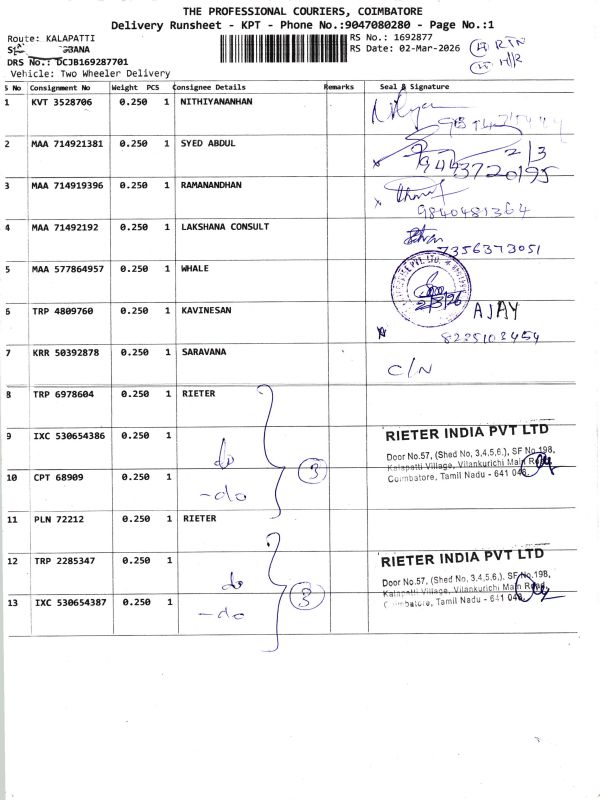 THE PROFESSIONAL COURIERS, COIMBATORE
Delivery Runsheet - KPT - Phone No.:9047080280 - Page No.:1
Route: KALAPATTI
RS No.: 1692877
RS Date: 02-Mar-2026
DRS No.: DCJB169287701
Vehicle: Two Wheeler Delivery
S No Consignment No Weight PCS Consignee Details Remarks Seal & Signature
1 KVT 3528706 0.250 1 NITHIYANANHAN
2 MAA 714921381 0.250 1 SYED ABDUL 2/3
9443720195
3 MAA 714919396 0.250 1 RAMANANDHAN
9840481364
4 MAA 71492192 0.250 1 LAKSHANA CONSULT
7356373051
5 MAA 577864957 0.250 1 WHALE
2/3/26
6 TRP 4809760 0.250 1 KAVINESAN AJAY
8225103454
7 KRR 50392878 0.250 1 SARAVANA C/N
8 TRP 6978604 0.250 1 RIETER
9 IXC 530654386 0.250 1 do
10 CPT 68909 0.250 1 -do
3
RIETER INDIA PVT LTD
Door No.57, (Shed No, 3,4,5,6,), SF No.198,
Kalapatti Village, Vilankurichi Main Road,
Coimbatore, Tamil Nadu - 641 048.
11 PLN 72212 0.250 1 RIETER
12 TRP 2285347 0.250 1 do
13 IXC 530654387 0.250 1 -do
3
RIETER INDIA PVT LTD
Door No.57, (Shed No, 3,4,5,6,), SF No.198,
Kalapatti Village, Vilankurichi Main Road,
Coimbatore, Tamil Nadu - 641 048.